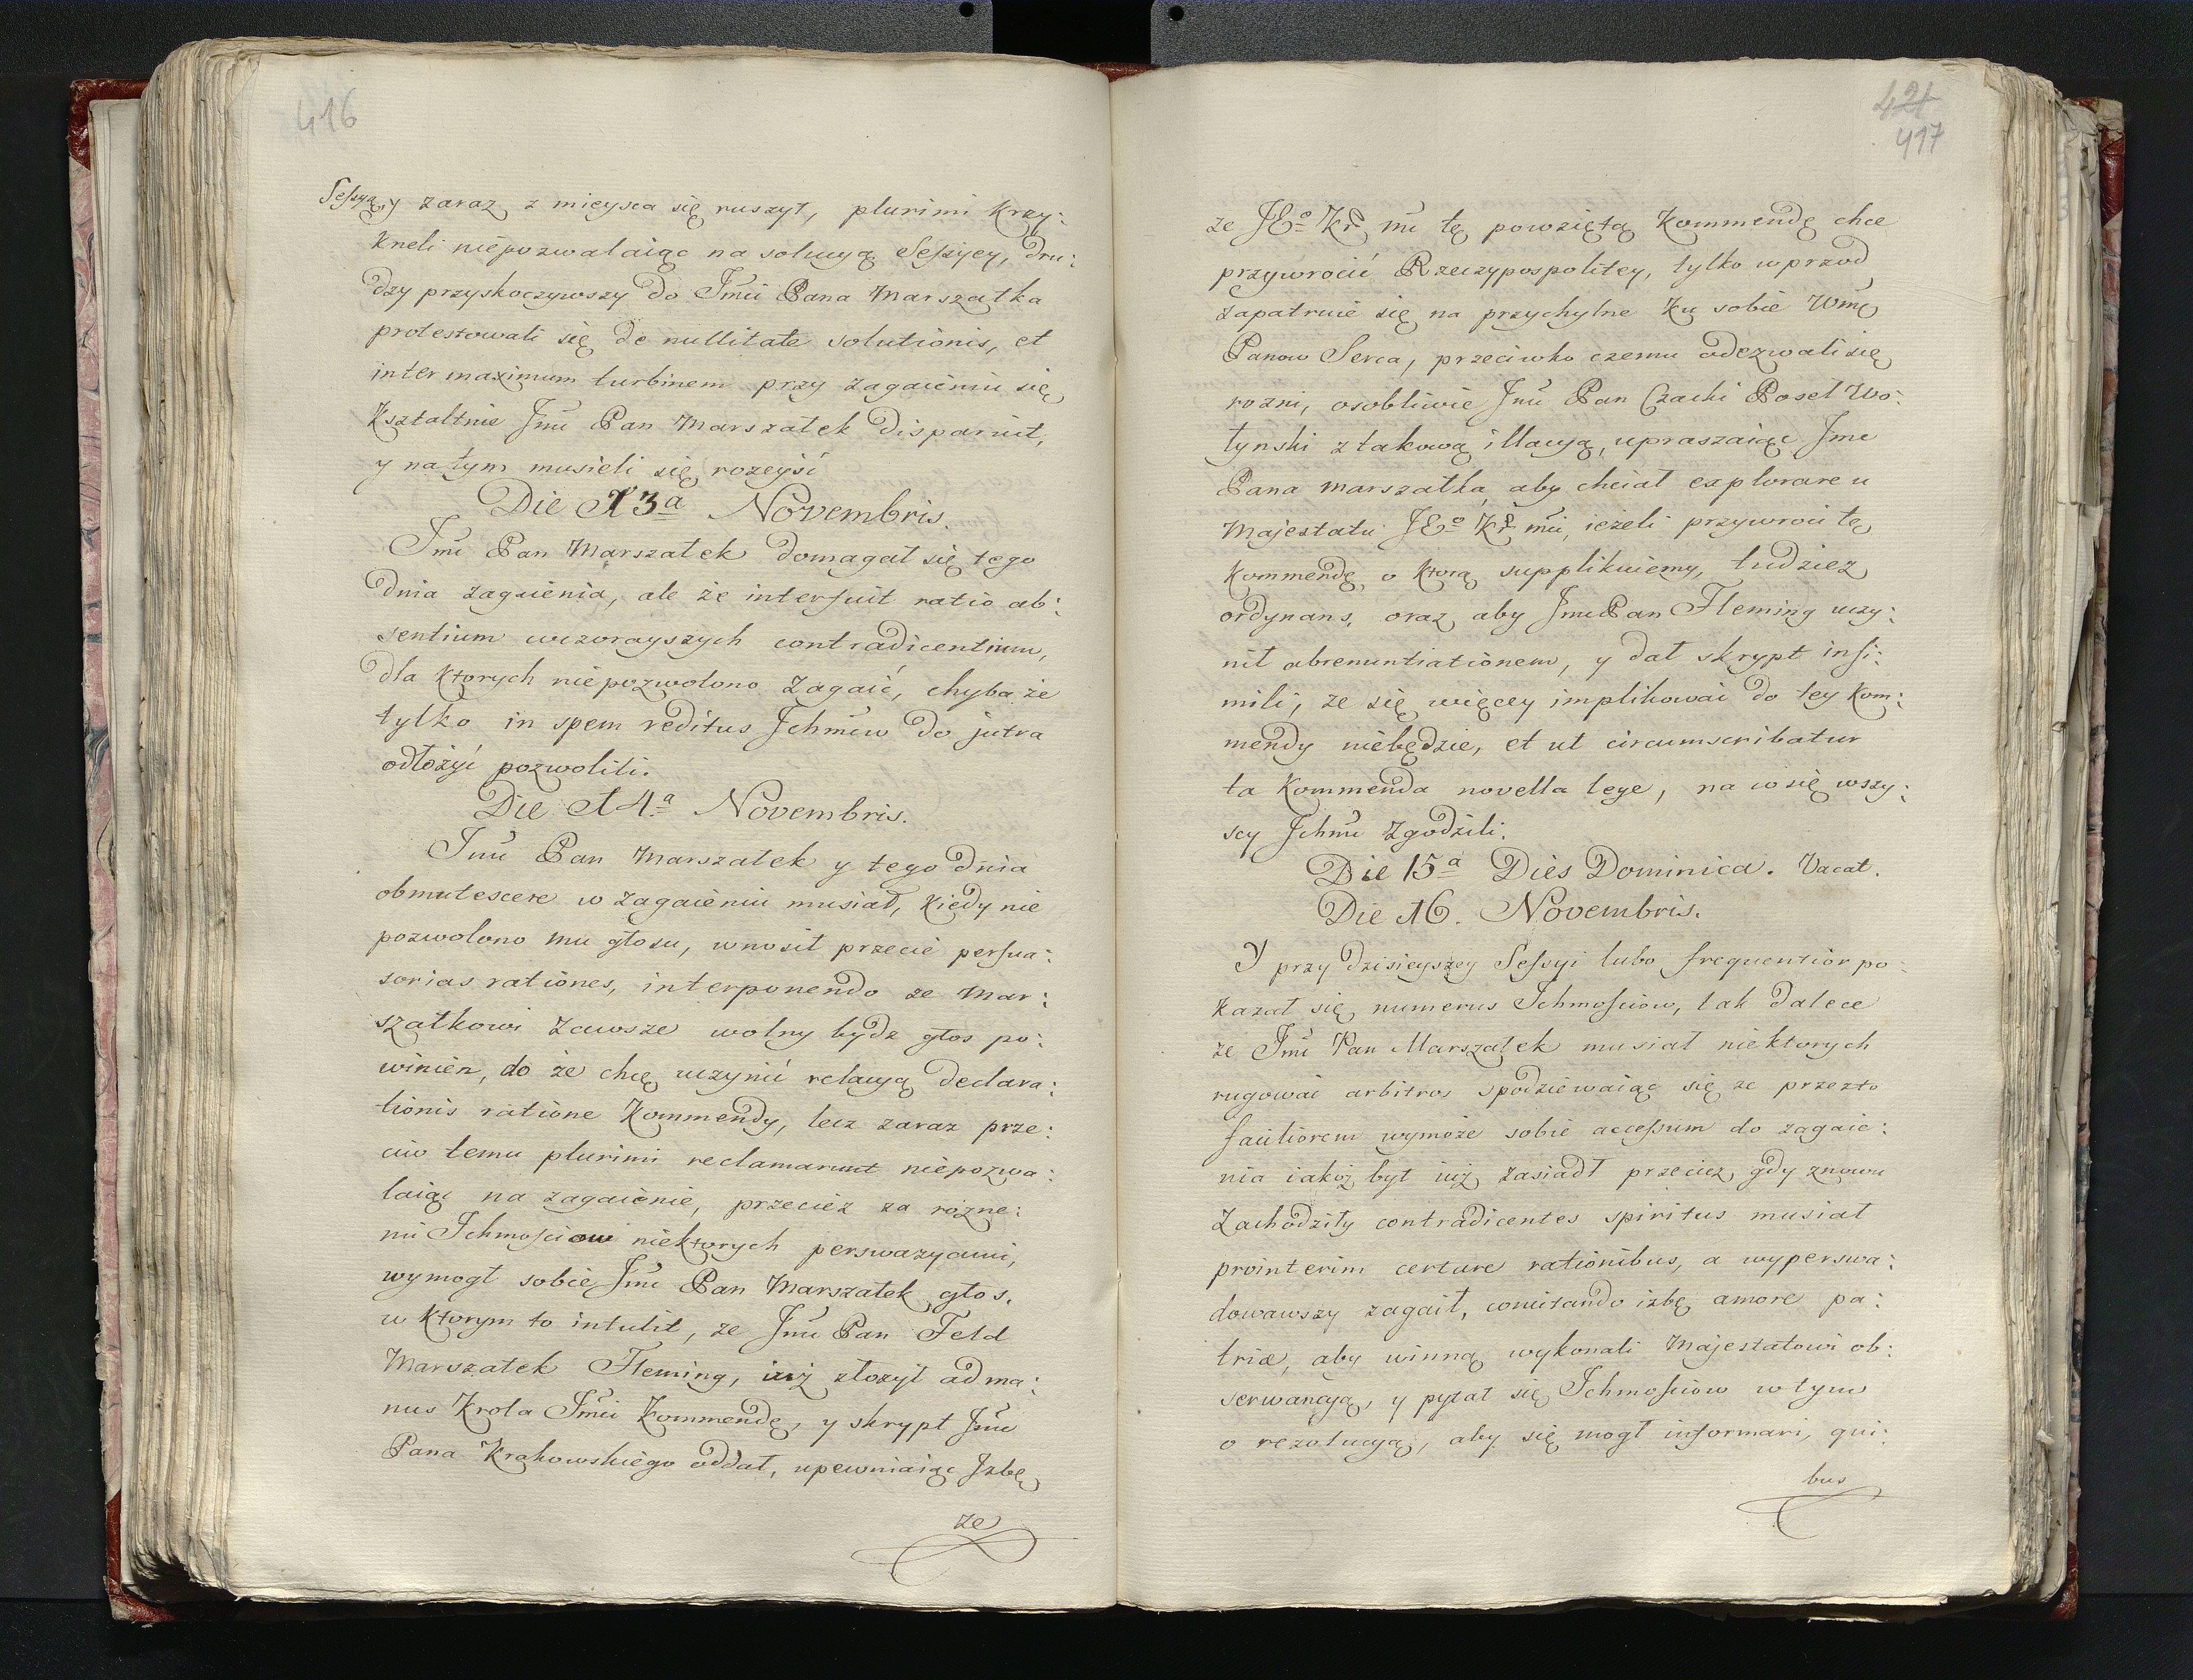 416
Sessyą, y zaraz z mieysca się ruszył, plurimi krzy:
kneli niepozwalaiąc na solucyą Sessyey, dru:
dzy przyskoczywszy do Jmći Pana Marszałka
protestowali się de nullitate solutionis, et
inter maximum turbinem przy zagaieniu się
kształtnie Jmć Pan Marszałek disparuit,
y na tym musieli się rozeyść
Die 13ª Novembris.
Jmć Pan Marszałek domagał się tego
dnia zagaienia, ale że interfuit ratio ab:
sentium wczorayszych contradicentium,
dla ktorych niepozwolono zagaić, chyba że
tylko in spem reditus Jchmćiw do jutra
odłożyć pozwolili.
Die 14.ª Novembris.
Jmć Pan Marszałek y tego dnia
obmutescere w zagaieniu musiał, kiedy nie
pozwolono mu głosu, wnosił przecie persua:
sorias rationes, interponendo ze Mar:
szałkowi zawsze wolny bydz głos po:
winien, do że chcę uczynić relacyą declara:
tionis ratione Kommendy, lecz zaraz prze:
ciw temu plurimi reclamarunt niepozwa:
laiąc na zagaienie, przecież za rozne:
mi Jchmościow niektorych perswazyami,
wymogł sobie Jmć Pan Marszałek głos,
w ktorym to intulit, ze Jmć Pan Feld
Marszałek Fleming, iuż złożył ad ma:
nus Krola Jmći Kommendę, y skrypt Jmć
Pana Krakowskiego oddał, upewniaiąc Jzbę
ze
421
417
ze JEº Kr mć tę powziętą Kommendę chce
przywrocić Rzeczypospolitey, tylko wprzod
zapatruie się na przychylne ku sobie Wmć
Panow Serca, przeciwko czemu odezwali się
rozni, osobliwie Jmć Pan Czacki Poseł Wo:
łynski z takową illacyą, upraszaiąc Jmć
Pana Marszałka, aby chciał explorare u
Majestatu JEº Kr mći, ieżeli przywroci tę
Kommendę, o ktorą supplikuiemy, tudziez
ordynans, oraz aby Jmć Pan Fleming uczy:
nił abrenuntiationem, y dał skrypt insi:
mili, ze się więcey implikować do tey Kom:
mendy niebędzie, et ut circumscribatur
ta Kommenda novella lege, na co się wszy:
scy Jchmć zgodzili.
Die 15ª Dies Dominica. Vacat.
Die 16. Novembris.
Y przy dzisieyszey Sessyi lubo frequentior po:
kazał się numerus Jchmościow, tak dalece
że Jmć Pan Marszałek musiał niektorych
rugować arbitros spodziewaiąc się ze przezto
faciliorem wymoże sobie accessum do zagaie:
nia iakoż był iuż zasiadł przeciez gdy znowu
zachodziły contradicentes spiritus musiał
prointerim certare rationibus, a wyperswa:
dowawszy zagaił, conuitando izbę amore pa:
triæ, aby winną wykonali Majestatowi ob:
serwancyą, y pytał się Jchmościow w tym
o rezolucyą, aby się mogł informari, qui:
bus